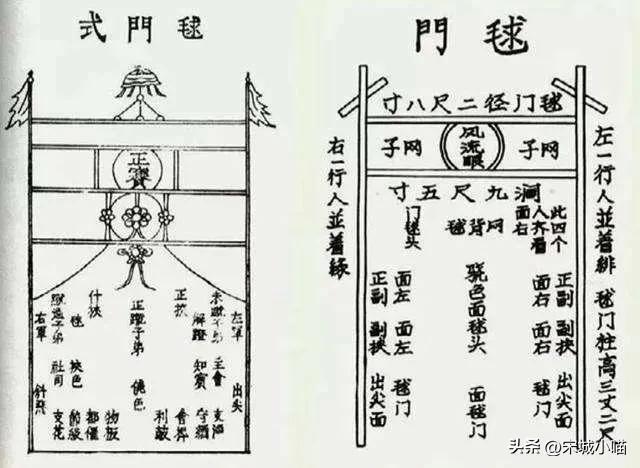 毬門式
正賽
左軍
出尖
主會
支酒
解蹬
知賓
守網
正挾
會幹
利鼓
正蹬子弟
僥色
什挾
物板
毬
挾色
都催
社司
節級
右軍
斜飛
支花
毬門
毬门径二尺八寸
网子
风流眼
网子
阔九尺五寸
此四个
人齐看
面右
网背毬
门毬头
正副挟出尖面
面右面右毬门
骁色面毬头面毬门
面左面左毬门
正副副挟出尖面
左一行人並着緋
毬门柱高三丈二尺
右一行人並着緑
头条 @宋城小喵